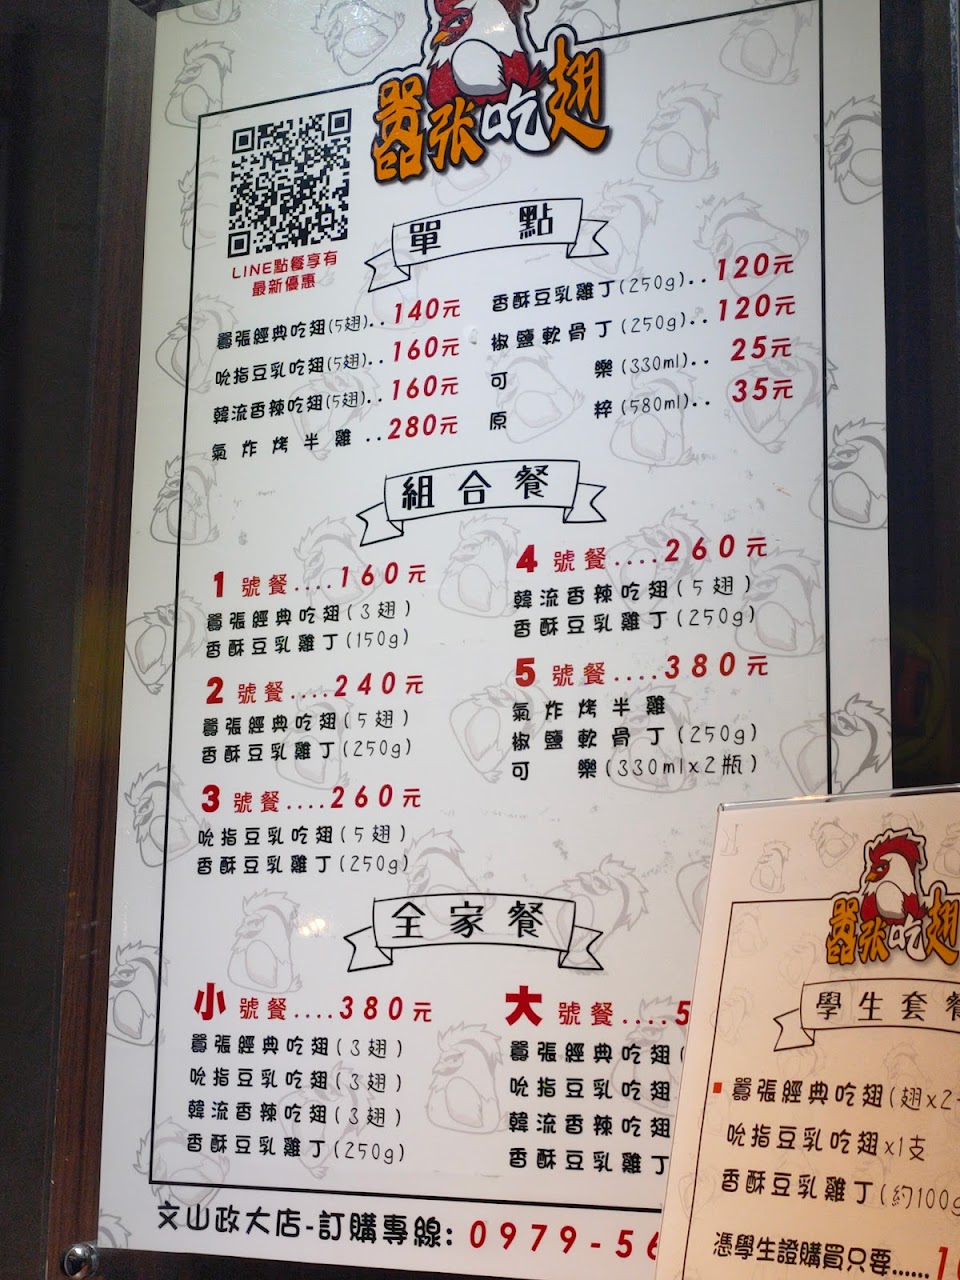 囂張吃翅
LINE點餐享有
最新優惠
單 點
囂張經典吃翅(5翅)..140元
吮指豆乳吃翅(5翅)..160元
韓流香辣吃翅(5翅)..160元
氣炸烤半雞..280元
香酥豆乳雞丁(250g)..120元
椒鹽軟骨丁(250g)..120元
可 樂(330ml).. 25元
原 粹(580ml).. 35元
組合餐
1 號餐....160元
囂張經典吃翅(3翅)
香酥豆乳雞丁(150g)
2 號餐....240元
囂張經典吃翅(5翅)
香酥豆乳雞丁(250g)
3 號餐....260元
吮指豆乳吃翅(5翅)
香酥豆乳雞丁(250g)
4 號餐....260元
韓流香辣吃翅(5翅)
香酥豆乳雞丁(250g)
5 號餐....380元
氣炸烤半雞
椒鹽軟骨丁(250g)
可 樂(330mlx2瓶)
全家餐
小 號餐....380元
囂張經典吃翅(3翅)
吮指豆乳吃翅(3翅)
韓流香辣吃翅(3翅)
香酥豆乳雞丁(250g)
大 號餐....5
囂張經典吃翅(
吮指豆乳吃翅
韓流香辣吃翅
香酥豆乳雞丁
文山政大店-訂購專線: 0979-56
囂張吃翅
學生套餐
囂張經典吃翅(翅x2
吮指豆乳吃翅x1支
香酥豆乳雞丁(約100g
憑學生證購買只要......1